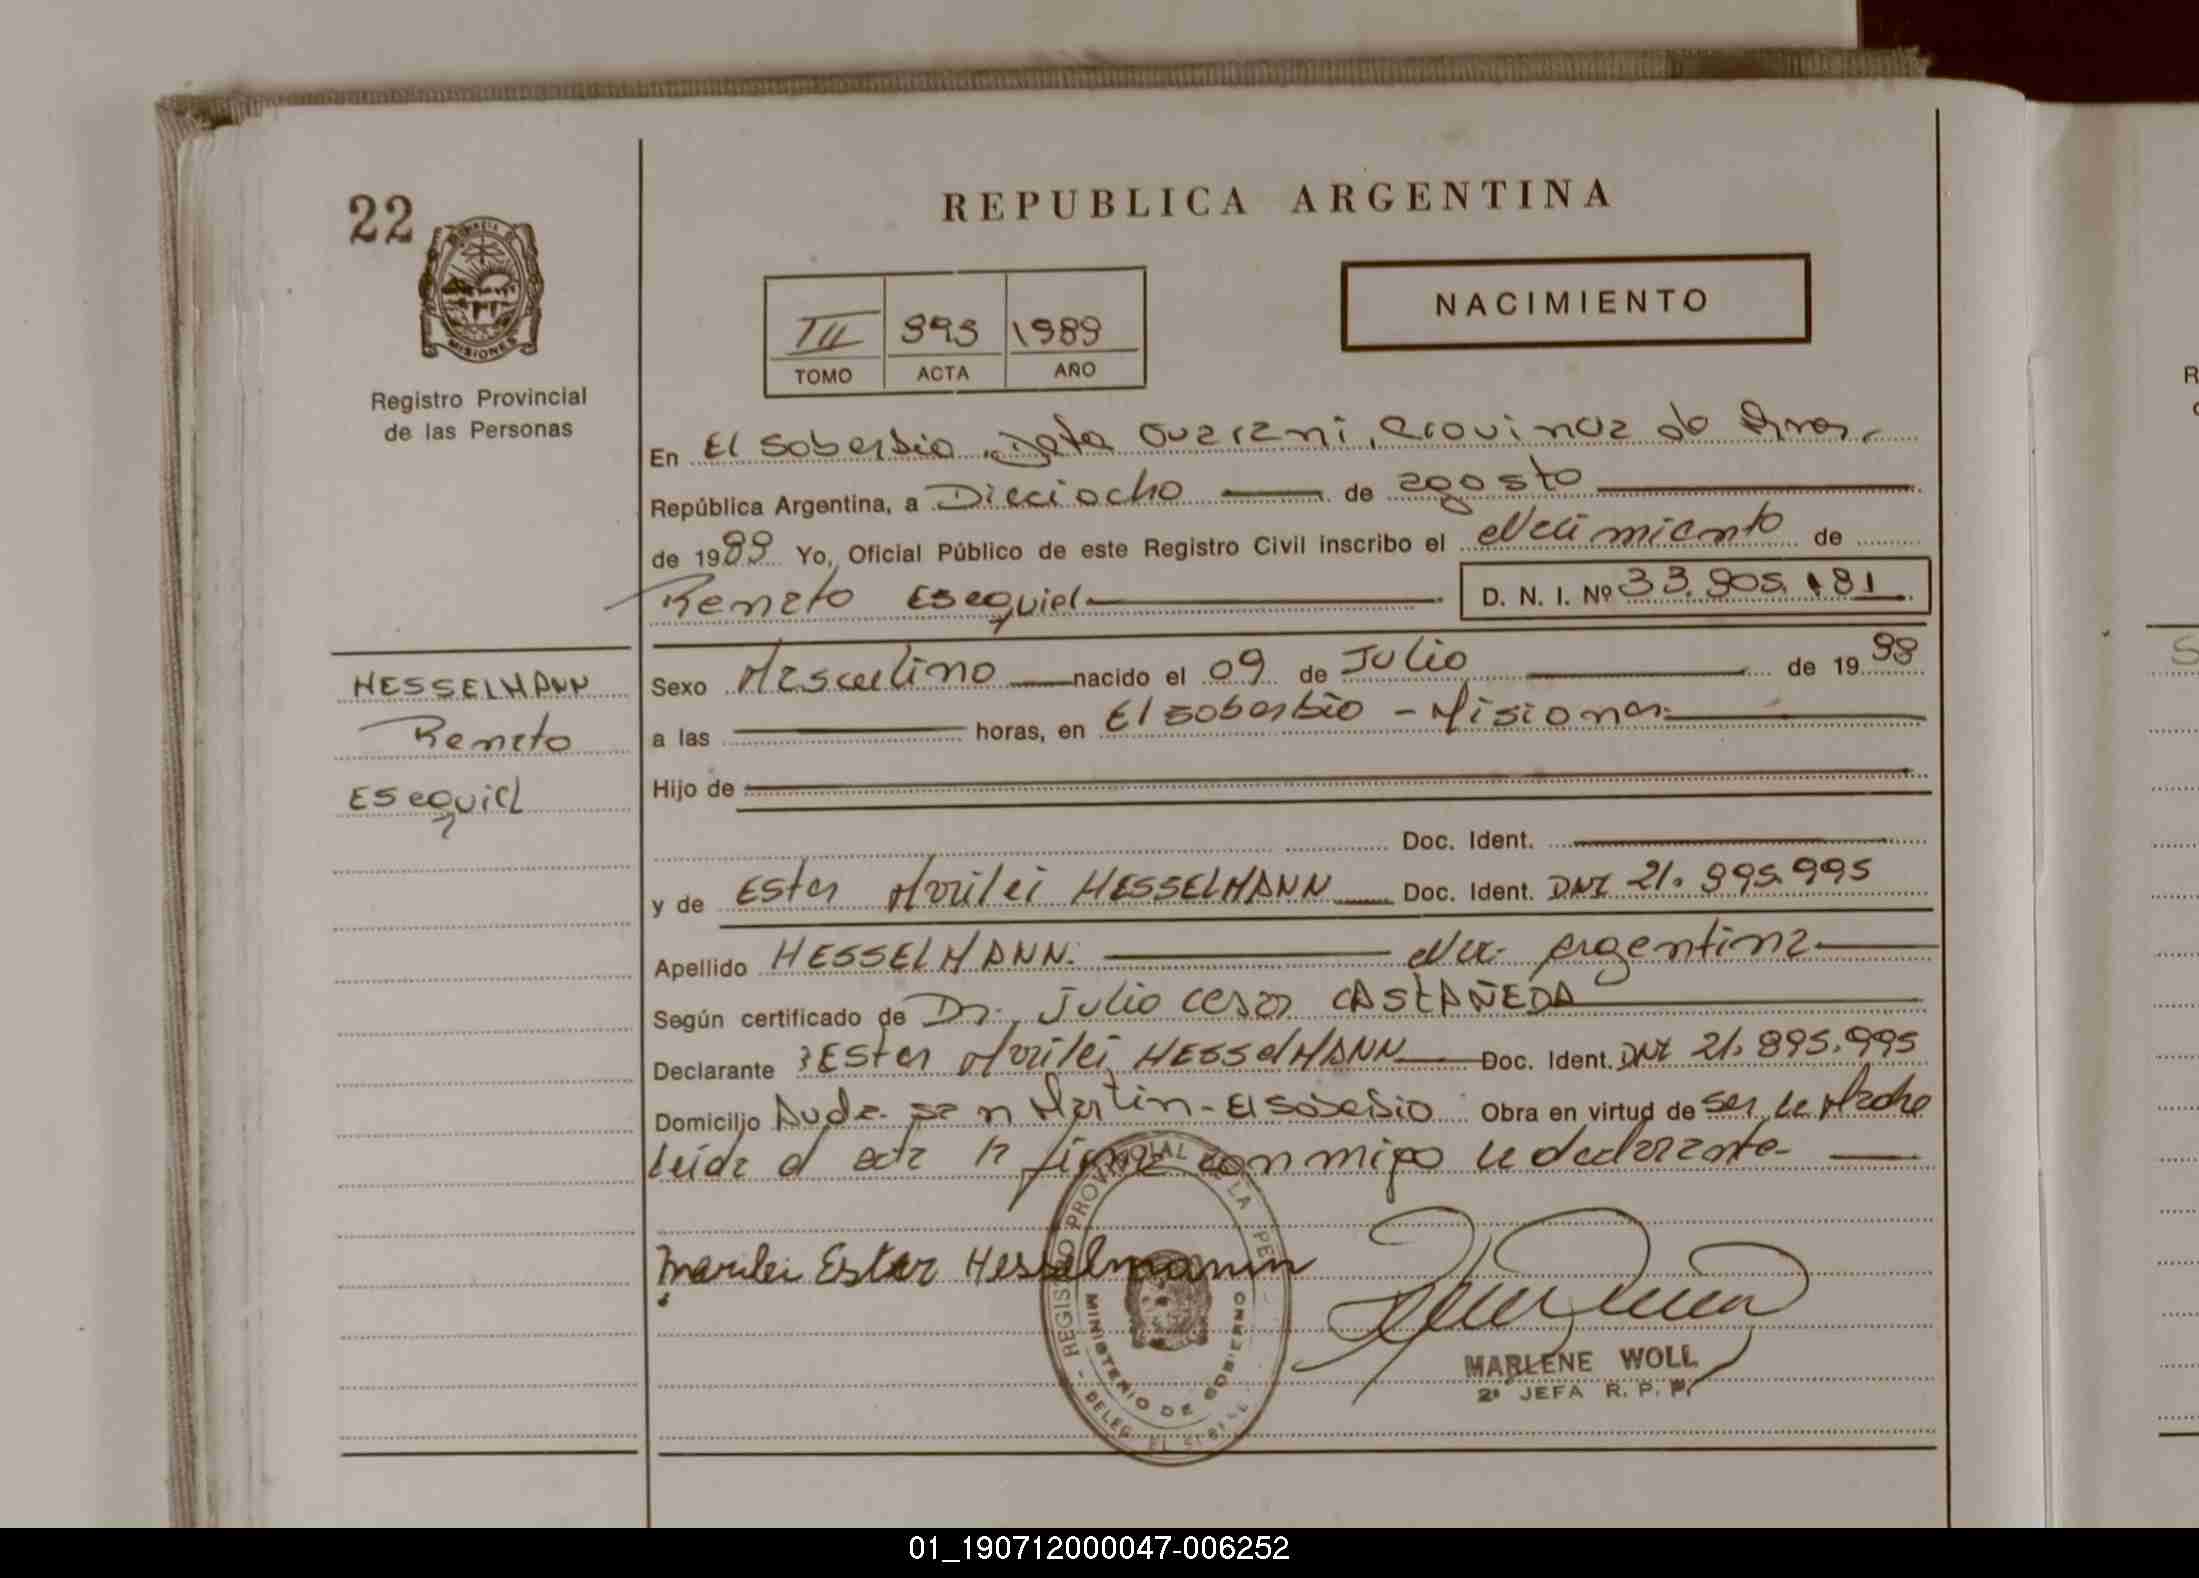 REPUBLICA ARGENTINA
22
NACIMIENTO
III 893 1989
TOMO ACTA AÑO
MISIONES
Registro Provincial
de las Personas
En El Soberbio, Guarani, Provincia de
República Argentina, a Dieciocho de agosto
de 1989 Yo, Oficial Público de este Registro Civil inscribo el Nacimiento de
Renato Esequiel D. N. I. Nº 33.905.181
HESSELMANN
Renato
Esequiel
Sexo Masculino nacido el 09 de Julio de 19
a las horas, en El soberbio - Misiones
Hijo de
Doc. Ident.
y de Ester Marilei HESSELMANN Doc. Ident. DNI 21.895.995
Apellido HESSELMANN. Nac. argentina
Según certificado de Dr. Julio Cesar CASTAÑEDA
Declarante Ester Marilei HESSELMANN Doc. Ident. DNI 21.895.995
Domicilio Avda. san Martin - El Soberbio Obra en virtud de ser la Madre
Leida el acta la firma conmigo la declarante
Marilei Ester Hesselmann
REGISTRO PROVINCIAL DE LA PE
MINISTERIO DE GOBIERNO
DELEG. EL
MARLENE WOLL
2º JEFA R. P. P.
01_190712000047-006252